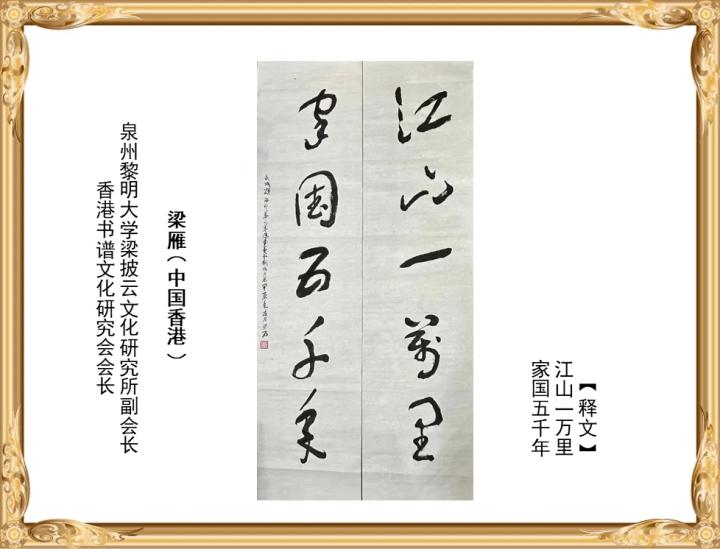 【释文】
江山一万里
家国五千年
江山一萬里
家国五千年
梁雁(中国香港)
泉州黎明大学梁披云文化研究所副会长
香港书谱文化研究会会长